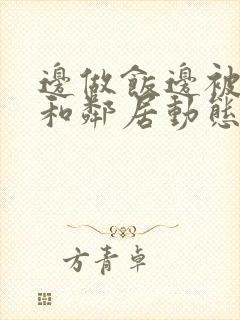 邊做飯邊被
和鄰居動態
方青卓